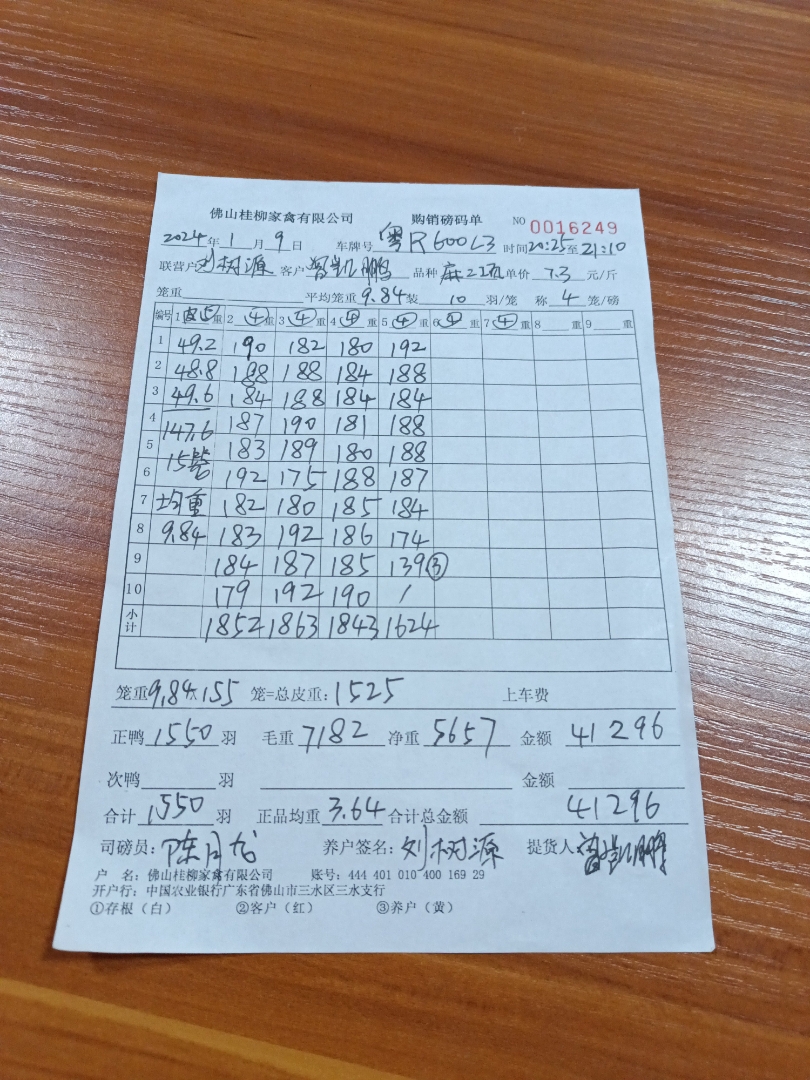 佛山桂柳家禽有限公司 购销磅码单 NO 0016249
2024年1月9日 车牌号 粤R600L3 时间20:25至21:10
联营户 刘树源 客户 曾凯鹏 品种 麻二 单价 7.3 元/斤
笼重 平均笼重 9.84 装 10 羽/笼 称 4 笼/磅
编号 1 皮⑤重 2 ④重 3 ④重 4 ④重 5 ④重 6 ④重 7 ④重 8 重 9 重
1 49.2 190 182 180 192
2 48.8 188 188 184 188
3 49.6 184 188 184 184
4 147.6 187 190 181 188
5 15笼 183 189 180 188
6 192 175 188 187
7 均重 182 180 185 184
8 9.84 183 192 186 174
9 184 187 185 139③
10 179 192 190 /
小计 1852 1863 1843 1624
笼重9.84x155 笼=总皮重:1525 上车费
正鸭 1550 羽 毛重 7182 净重 5657 金额 41296
次鸭 羽 金额
合计 1550 羽 正品均重 3.64 合计总金额 41296
司磅员: 陈月龙 养户签名: 刘树源 提货人 曾凯鹏
户 名: 佛山桂柳家禽有限公司 账号: 444 401 010 400 169 29
开户行: 中国农业银行广东省佛山市三水区三水支行
①存根（白） ②客户（红） ③养户（黄）